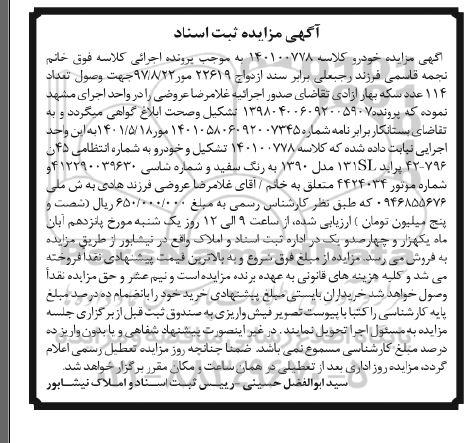 آگهی مزایده ثبت اسناد
آگهی مزایده خودرو کلاسه ۱۴۰۱۰۰۷۷۸ به موجب پرونده اجرائی کلاسه فوق خانم
نجمه قاسمی فرزند رجبعلی برابر سند ازدواج ۲۲۶۱۹ مور۹۷/۸/۲۲جهت وصول تعداد
۱۱۴ عدد سکه بهار آزادی تقاضای صدور اجرائیه غلامرضا عروضی را در واحد اجرای مشهد
نموده که پرونده۱۳۹۸۰۴۰۰۶۰۹۲۰۰۵۹۰۷ تشکیل وصحت ابلاغ گواهی میگردد و به
تقاضای بستانکار برابر نامه شماره ۱۴۰۱۰۵۸۰۶۰۹۲۰۰۷۳۴۵ مور۱۴۰۱/۵/۱۸به این واحد
اجرایی نیابت داده شده که کلاسه ۱۴۰۱۰۰۷۷۸ تشکیل و خودرو به شماره انتظامی ۴۵ن
۴۲-۷۹۶ پراید ۱۳۱SL مدل ۱۳۹۰ به رنگ سفید و شماره شاسی ۴۱۲۲۹۰۰۳۹۶۳۰و
شماره موتور ۴۴۲۴۰۳۴ متعلق به خانم / اقای غلامرضا عروضی فرزند هادی به ش ملی
۰۹۴۶۸۵۵۶۷۶ که طبق نظر کارشناس رسمی به مبلغ ۶۵۰/۰۰۰/۰۰۰ ریال (شصت و
پنج میلیون تومان ) ارزیابی شده، از ساعت ۹ الی ۱۲ روز یک شنبه مورخ پانزدهم آبان
ماه یکهزار و چهارصدو یک در اداره ثبت اسناد و املاک واقع در نیشابور از طریق مزایده
به فروش می رسد. مزایده از مبلغ فوق شروع و به بالاترین قیمت پیشنهادی نقدا فروخته
می شد و کلیه هزینه های قانونی به عهده برنده مزایده است و نیم عشر و حق مزایده نقداً
وصول خواهد شد.خریداران بایستی مبلغ پیشنهادی خرید خود رابانضمام ده درصد مبلغ
پایه کارشناسی را کتبا با پیوست تصویر فیش واریزی به صندوق ثبت قبل از برگزاری جلسه
مزایده به مسئول اجرا تحویل نمایند . در غیر اینصورت پیشنهاد شفاهی و یا بدون واریز ده
درصد مبلغ کارشناسی مسموع نمی باشد. ضمنا چنانچه روز مزایده تعطیل رسمی اعلام
گردد، مزایده روز اداری بعد از تعطیلی در همان ساعت و مکان مقرر برگزار خواهد شد.
سید ابوالفضل حسینی – رییس ثبت اسناد و املاک نیشابور